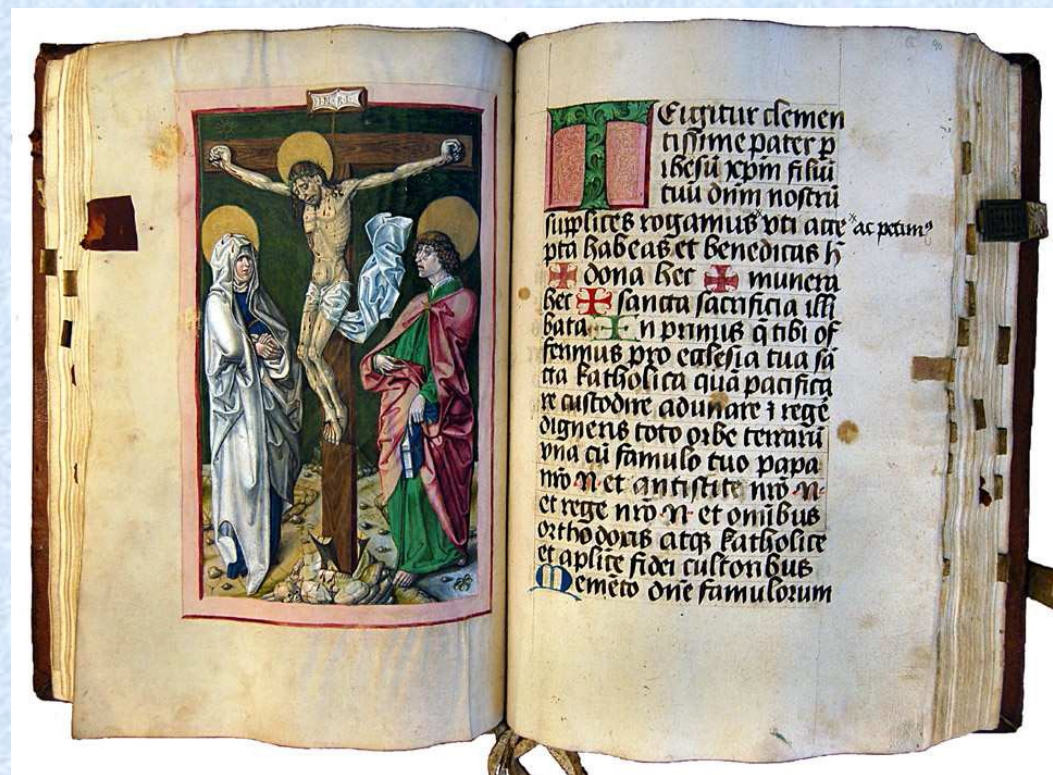 INRI
90
TE igitur clemen
tissime pater p
ihesū xpm̄ filiū
tuū dnm̄ nostrū
supplices rogamus vti acce ac petimꝰ
pta habeas et benedicas h̄
✠ dona hec ✠ munera
hec ✠ sancta sacrificia illi
bata In primis q̄ tibi of
ferimus pro ecclesia tua sā
cta katholica quā pacifica
re custodire adunare ⁊ regē
digneris toto orbe terrarū
vna cū famulo tuo papa
nrō N et antistite nrō N
et rege nrō N et omībus
orthodoxis atqꝫ katholice
et aplice fidei cultoribus
Memēto dnē famulorum